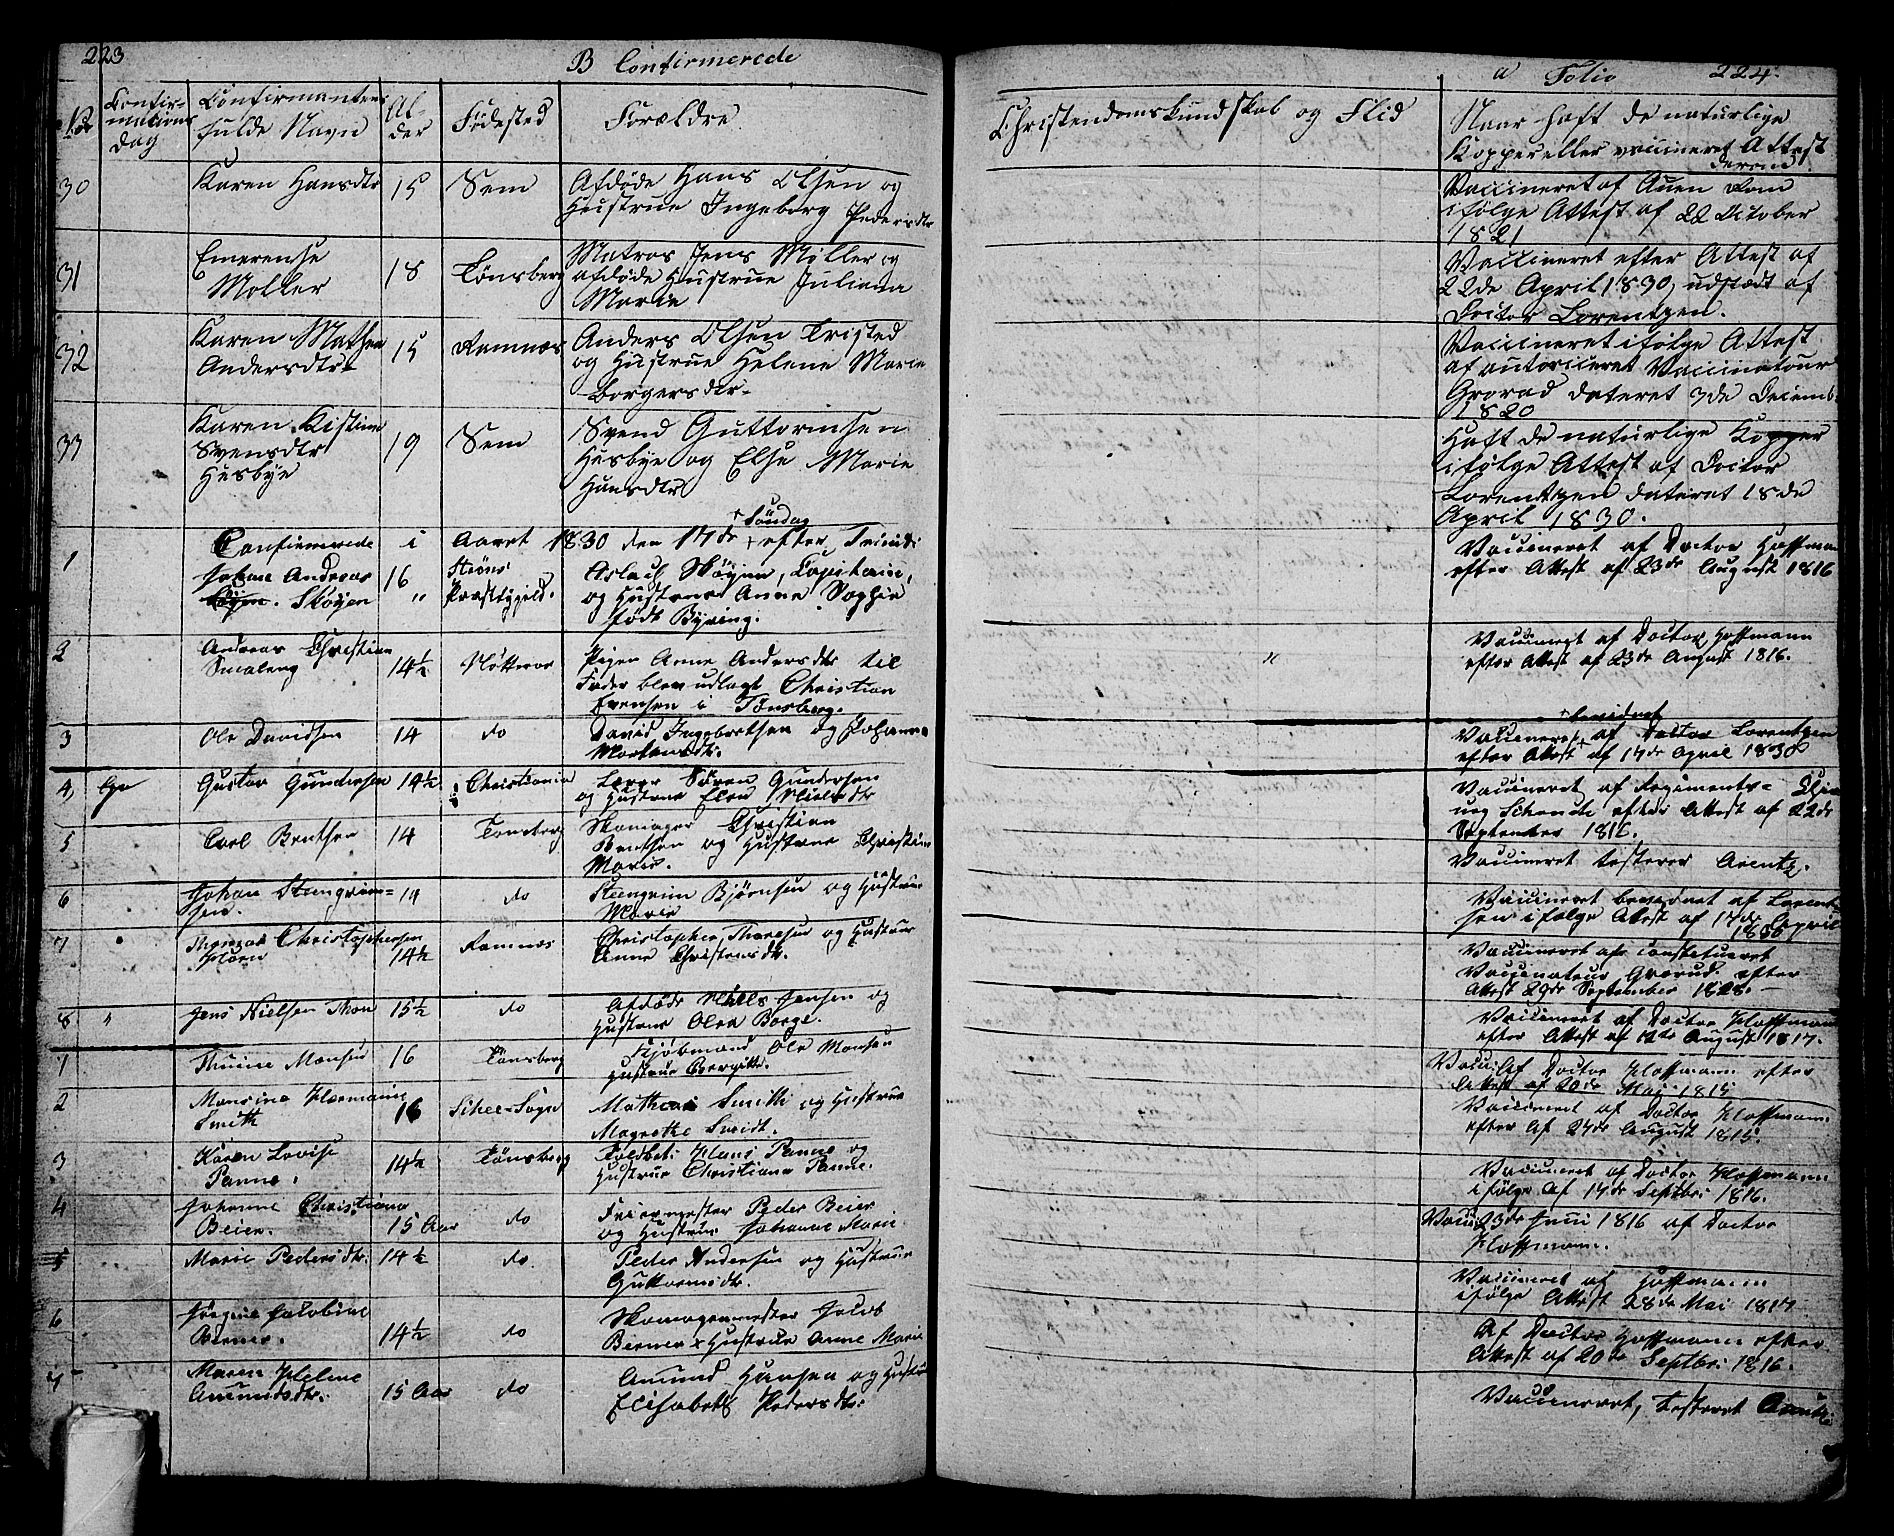 223
B Confirmerede
No
Confir-
mations
dag
Confirmantens
fulde Navn
Al-
der
Fødested
Forældre
30
Karen Hansdtr
15
Sem
Afdøde Hans Olsen og
Hustrue Ingeborg Pedersdtr
31
Emerense
Møller
18
Tønsberg
Matros Jens Møller og
afdøde Hustrue Juliana
Marie
32
Karen Mathea
Andersdtr
15
Ramnæs
Anders Olsen Tristed
og Hustrue Helene Marie
Borgersdtr
33
Karen Kistine
Svensdtr
Husbye
19
Sem
Svend Guttormsen
Husbye og Else Marie
Hansdtr
Confirmerede i Aaret 1830 den 17de Søndag efter Trinit:
1
Johan Andreas
Skøyen
16
Præstegield.
Aslach Skøyen, Capitain,
og Hustrue Anne Sophie
født Byring.
2
Andreas Christian
Smaleng
14½
Nøtterøe
Pigen Anne Andersdtr til
Fader blev udlagt Christian
Evensen i Tønsberg.
3
Ole Davidsen
14
do
David Ingebretsen og Johanne
Mortensdtr.
4
Gustav Gundersen
14½
i Christiania
Lærer Søren Gundersen
og Hustrue Elen Nielsdtr
5
Carl Bentsen
14
Tønsberg
Skomager Christian
Bentsen og Hustrue Christine
Marie.
6
Johan Steengrim-
sen.
14
do
Steengrim Bjørnsen og Hustrue
Marie
7
Christophersen
14½
Ramnæs
Christopher Thoresen og Hustrue
Anne Christensdtr.
8
"
Jens Nielsen Thon
15½
do
Afdøde Niels Jensen og
Hustrue Olea Borge.
1
Thrine Monsen
16
Tønsberg
Kjøbmand Ole Monsen
Hustrue Bergitte.
2
Monsine Hermanie
Smith
16
Schee-Sogn
Mathias Smith og Hustrue
Magrethe Smidt.
3
Karen Lovise
Panne.
14½
Tønsberg
Toldbet: Hans Panne og
Hustrue Christiana Panne.
4
Johanne Christiana
Beier.
15 Aar
do
Feiermester Peder Beier
og Hustrue Johanne Marie.
5
Marie Pedersdtr.
14½
do.
Peder Andersen og Hustrue
Guttormsdtr.
6
Jørgine Jacobine
Berner.
14½
do
Skomagermester Jacob
Berner & Hustrue Anne Marie
7
Maren Helene
Amundsdtr.
15 Aar
do
Amund Hansen og Hustrue
Elisabeth Pedersdtr:
a Folio 224.
Christendomskundskab og Flid
Naar haft de naturlige
Kopper eller vaccineret Attest
derom
Vaccineret af Auen Rom
ifølge Attest af 22 October
1821
Vaccineret efter Attest af
22de April 1830, udstædt af
Doctor Lorentzen.
Vaccineret ifølge Attest
af autoriceret Vaccinateur
Grorad dateret 3de Decemb.
1820
Haft de naturlige Kopper
ifølge Attest af Doctor
Lorentzen dateret 18de
April 1830.
Vaccineret af Doctor Hoffman
efter Attest af 23de August 1816
"
Vaccineret af Doctor Hoffmann
efter Attest af 23de August 1816.
Vaccineret af Doctor Lorentzen
efter Attest af 17de April 1830
Vaccineret af Regiments-
efter Attest af 22de
September 1816.
Vaccineret testerer Arentz.
Vaccineret bevidnet af Lorent-
sen ifølge Attest af 17de April
1830
Vaccineret af constitueret
Vaccinateur Grorud efter
Attest 29de September 1828.
Vaccineret af Doctor Hoffmann
efter Attest af 12de August 1817.
Vacci: af Doctor Hoffmann efter
Attest af 20de Mai 1815
Vaccineret af Doctor Hoffmann
efter af 27de August 1815.
Vaccineret af Doctor Hoffmann
ifølge af 17de Septbr: 1816.
Vacci: 23de Juni 1816 af Doctor
Hoffmann.
Vaccineret af Hoffmann
ifølge Attest 28de Mai 1817
Af Doctor Hoffmann efter
Attest af 20de Septbr: 1816.
Vaccineret, testeret Arentz